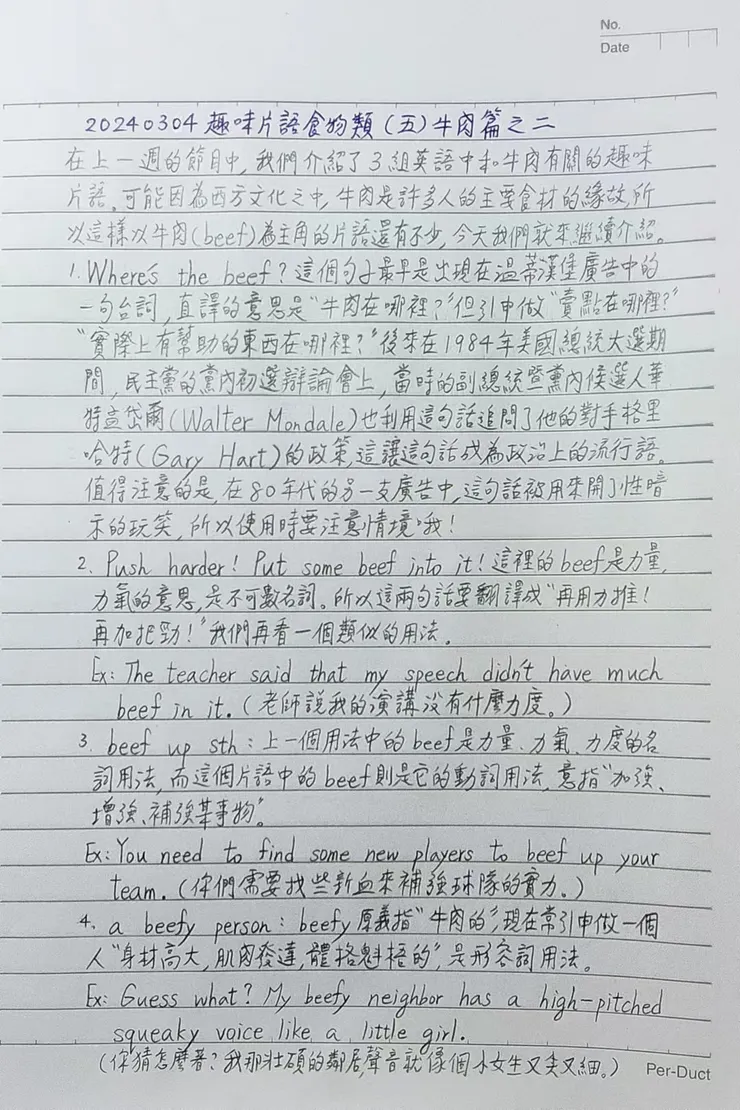 No.
Date
20240304 趣味片語食物類（五）牛肉篇之二
在上一週的節目中, 我們介紹了3組英語中和牛肉有關的趣味
片語。可能因為西方文化之中, 牛肉是許多人的主要食材的緣故, 所
以這樣以牛肉(beef)為主角的片語還有不少, 今天我們就來繼續介紹。
1. Where's the beef? 這個句子最早是出現在溫蒂漢堡廣告中的
一句台詞, 直譯的意思是"牛肉在哪裡?"但引申做"賣點在哪裡?"
"實際上有幫助的東西在哪裡?"後來在1984年美國總統大選期
間, 民主黨的黨內初選辯論會上, 當時的副總統暨黨內候選人華
特孟岱爾(Walter Mondale)也利用這句話追問了他的對手格里
哈特(Gary Hart)的政策, 這讓這句話成為政治上的流行語。
值得注意的是, 在80年代的另一支廣告中, 這句話被用來開了性暗
示的玩笑, 所以使用時要注意情境哦!
2. Push harder! Put some beef into it! 這裡的beef是力量,
力氣的意思, 是不可數名詞。所以這兩句話要翻譯成"再用力推!
再加把勁!"我們再看一個類似的用法。
Ex: The teacher said that my speech didn't have much
beef in it. (老師說我的演講沒有什麼力度。)
3. beef up sth: 上一個用法中的beef是力量、力氣、力度的名
詞用法, 而這個片語中的beef則是它的動詞用法, 意指"加強、
增強、補強某事物"。
Ex: You need to find some new players to beef up your
team. (你們需要找些新血來補強球隊的實力。)
4. a beefy person: beefy原義指"牛肉的", 現在常引申做一個
人"身材高大, 肌肉發達, 體格魁梧的", 是形容詞用法。
Ex: Guess what? My beefy neighbor has a high-pitched
squeaky voice like a little girl.
(你猜怎麼著? 我那壯碩的鄰居, 聲音就像個小女生又尖又細。)
Per-Duct